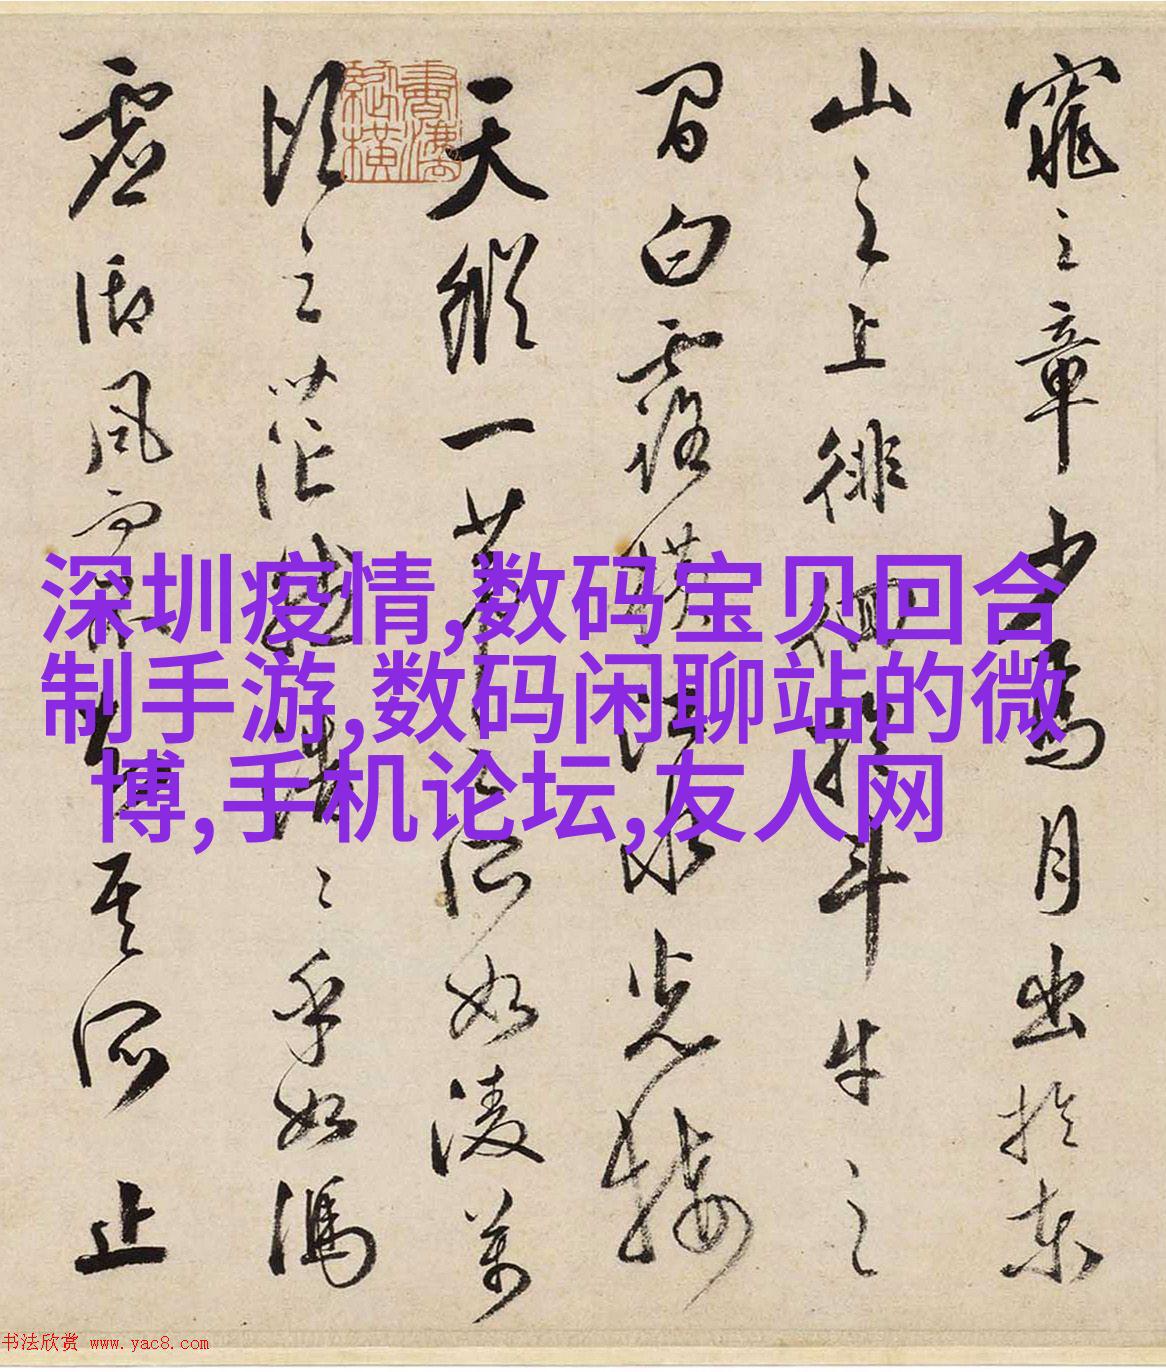 窕之章少焉月出於東
山之上徘徊於斗牛之
間白露橫江水光接
天縱一葦之所如凌萬
頃之茫然浩〻乎如馮
虛御風而不知其所止
深圳疫情,数码宝贝回合
制手游,数码闲聊站的微
博,手机论坛,友人网
书法欣赏 www.yac8.com